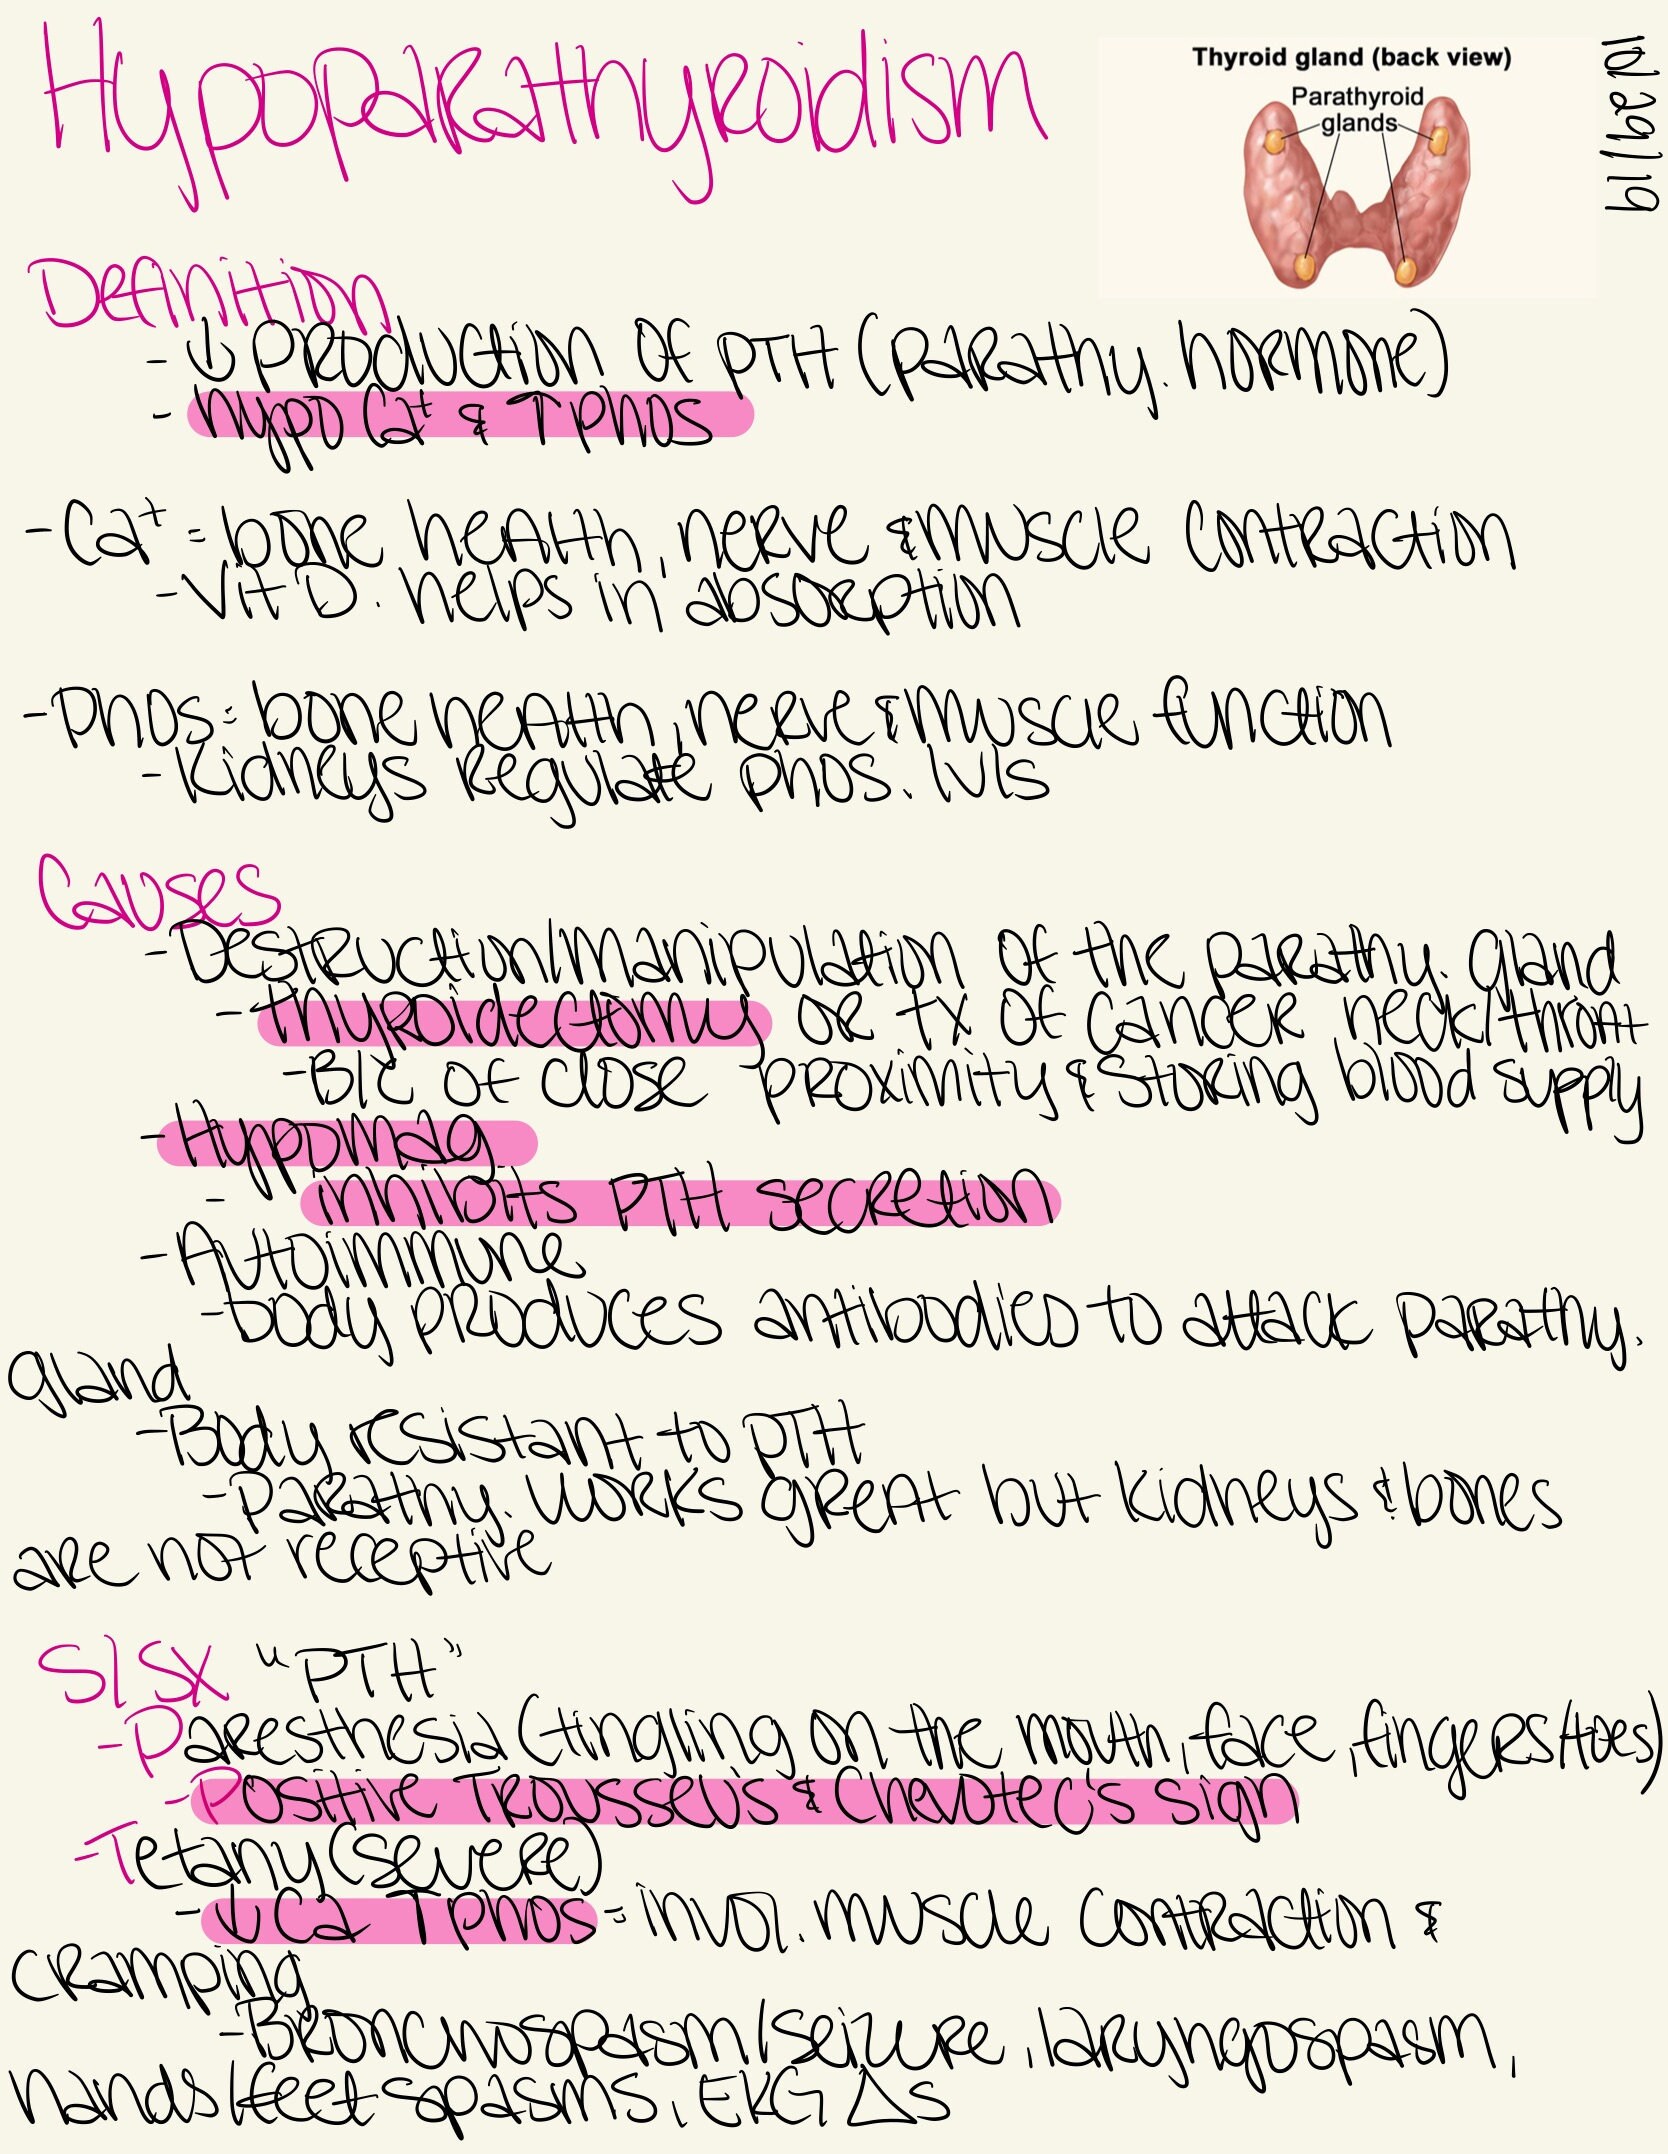 Hypoparathyroidism
Thyroid gland (back view)
Parathyroid
glands
10/29/19
Definition
- ↓ production of PTH (parathy. hormone)
- hypo Ca+ & ↑ phos
- Ca+ = bone health, nerve & muscle contraction
- Vit D. helps in absorption
- Phos = bone health, nerve & muscle function
- Kidneys regulate phos. lvls
Causes
- Destruction/manipulation of the parathy. gland
- thyroidectomy or tx of cancer neck/throat
- B/c of close proximity & storing blood supply
- Hypomag
- inhibits PTH secretion
- Autoimmune
- body produces antibodies to attack parathy.
gland
- Body resistant to PTH
- Parathy. works great but kidneys & bones
are not receptive
S/SX "PTH"
- Paresthesia (tingling on the mouth, face, fingers/toes)
- Positive Trousseu's & Chevotec's sign
- Tetany (severe)
- ↓ Ca ↑ phos = invol. muscle contraction &
cramping
- Bronchospasm/seizure, laryngospasm,
hands/feet spasms, EKG Δs